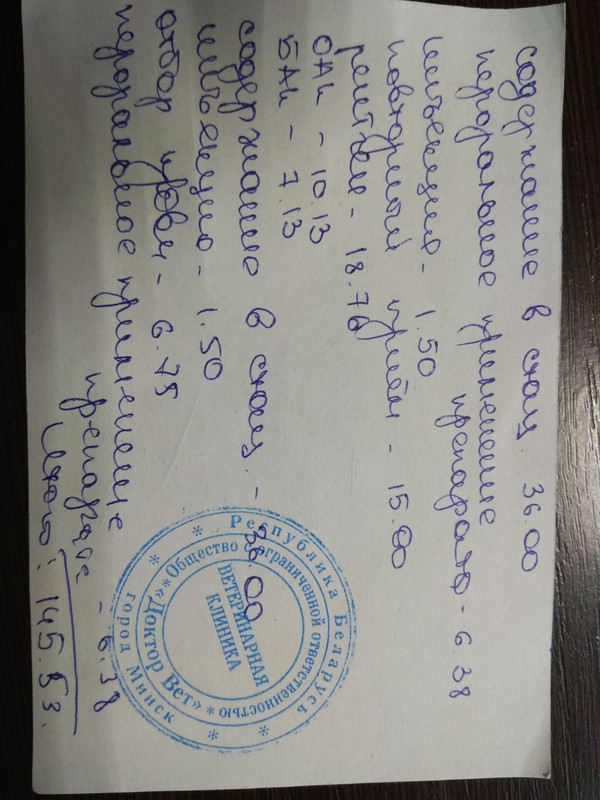 содержание в стац. 36.00
пероральное применение
препарата - 6.38
инъекция - 1.50
повторный приём - 15.00
рентген - 18.76
ОАК - 10.13
БАК - 7.13
содержание в стац. - 36.00
инъекция - 1.50
отбор крови - 6.75
пероральное применение
препарата - 6.38
Итого: 145.53.
Республика Беларусь
* город Минск *
* Общество с ограниченной ответственностью *
«Доктор Вет»
ВЕТЕРИНАРНАЯ
КЛИНИКА